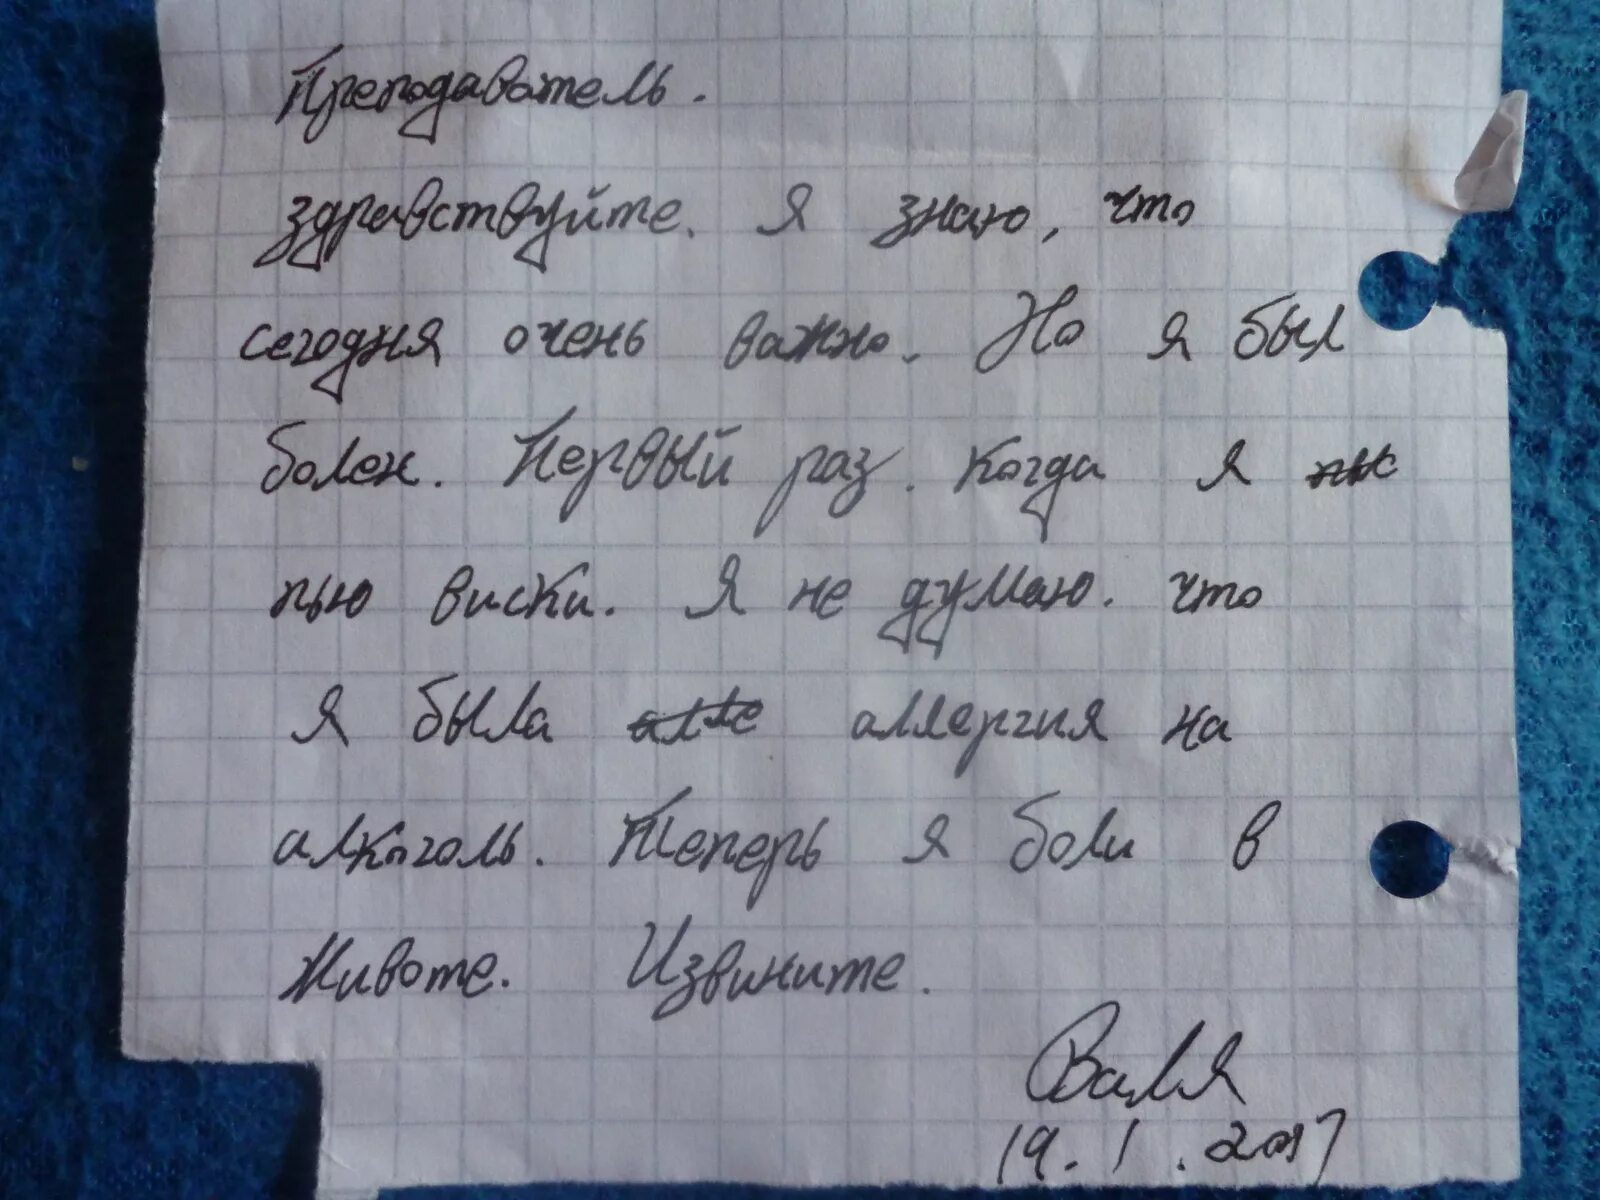 Преподаватель.
здравствуйте. Я знаю, что
сегодня очень важно. Но я был
болен. Первый раз. когда я
пью виски. Я не думаю. что
я была алле аллергия на
алкоголь. Теперь я боли в
животе. Извините.
Валя
19.1.2017